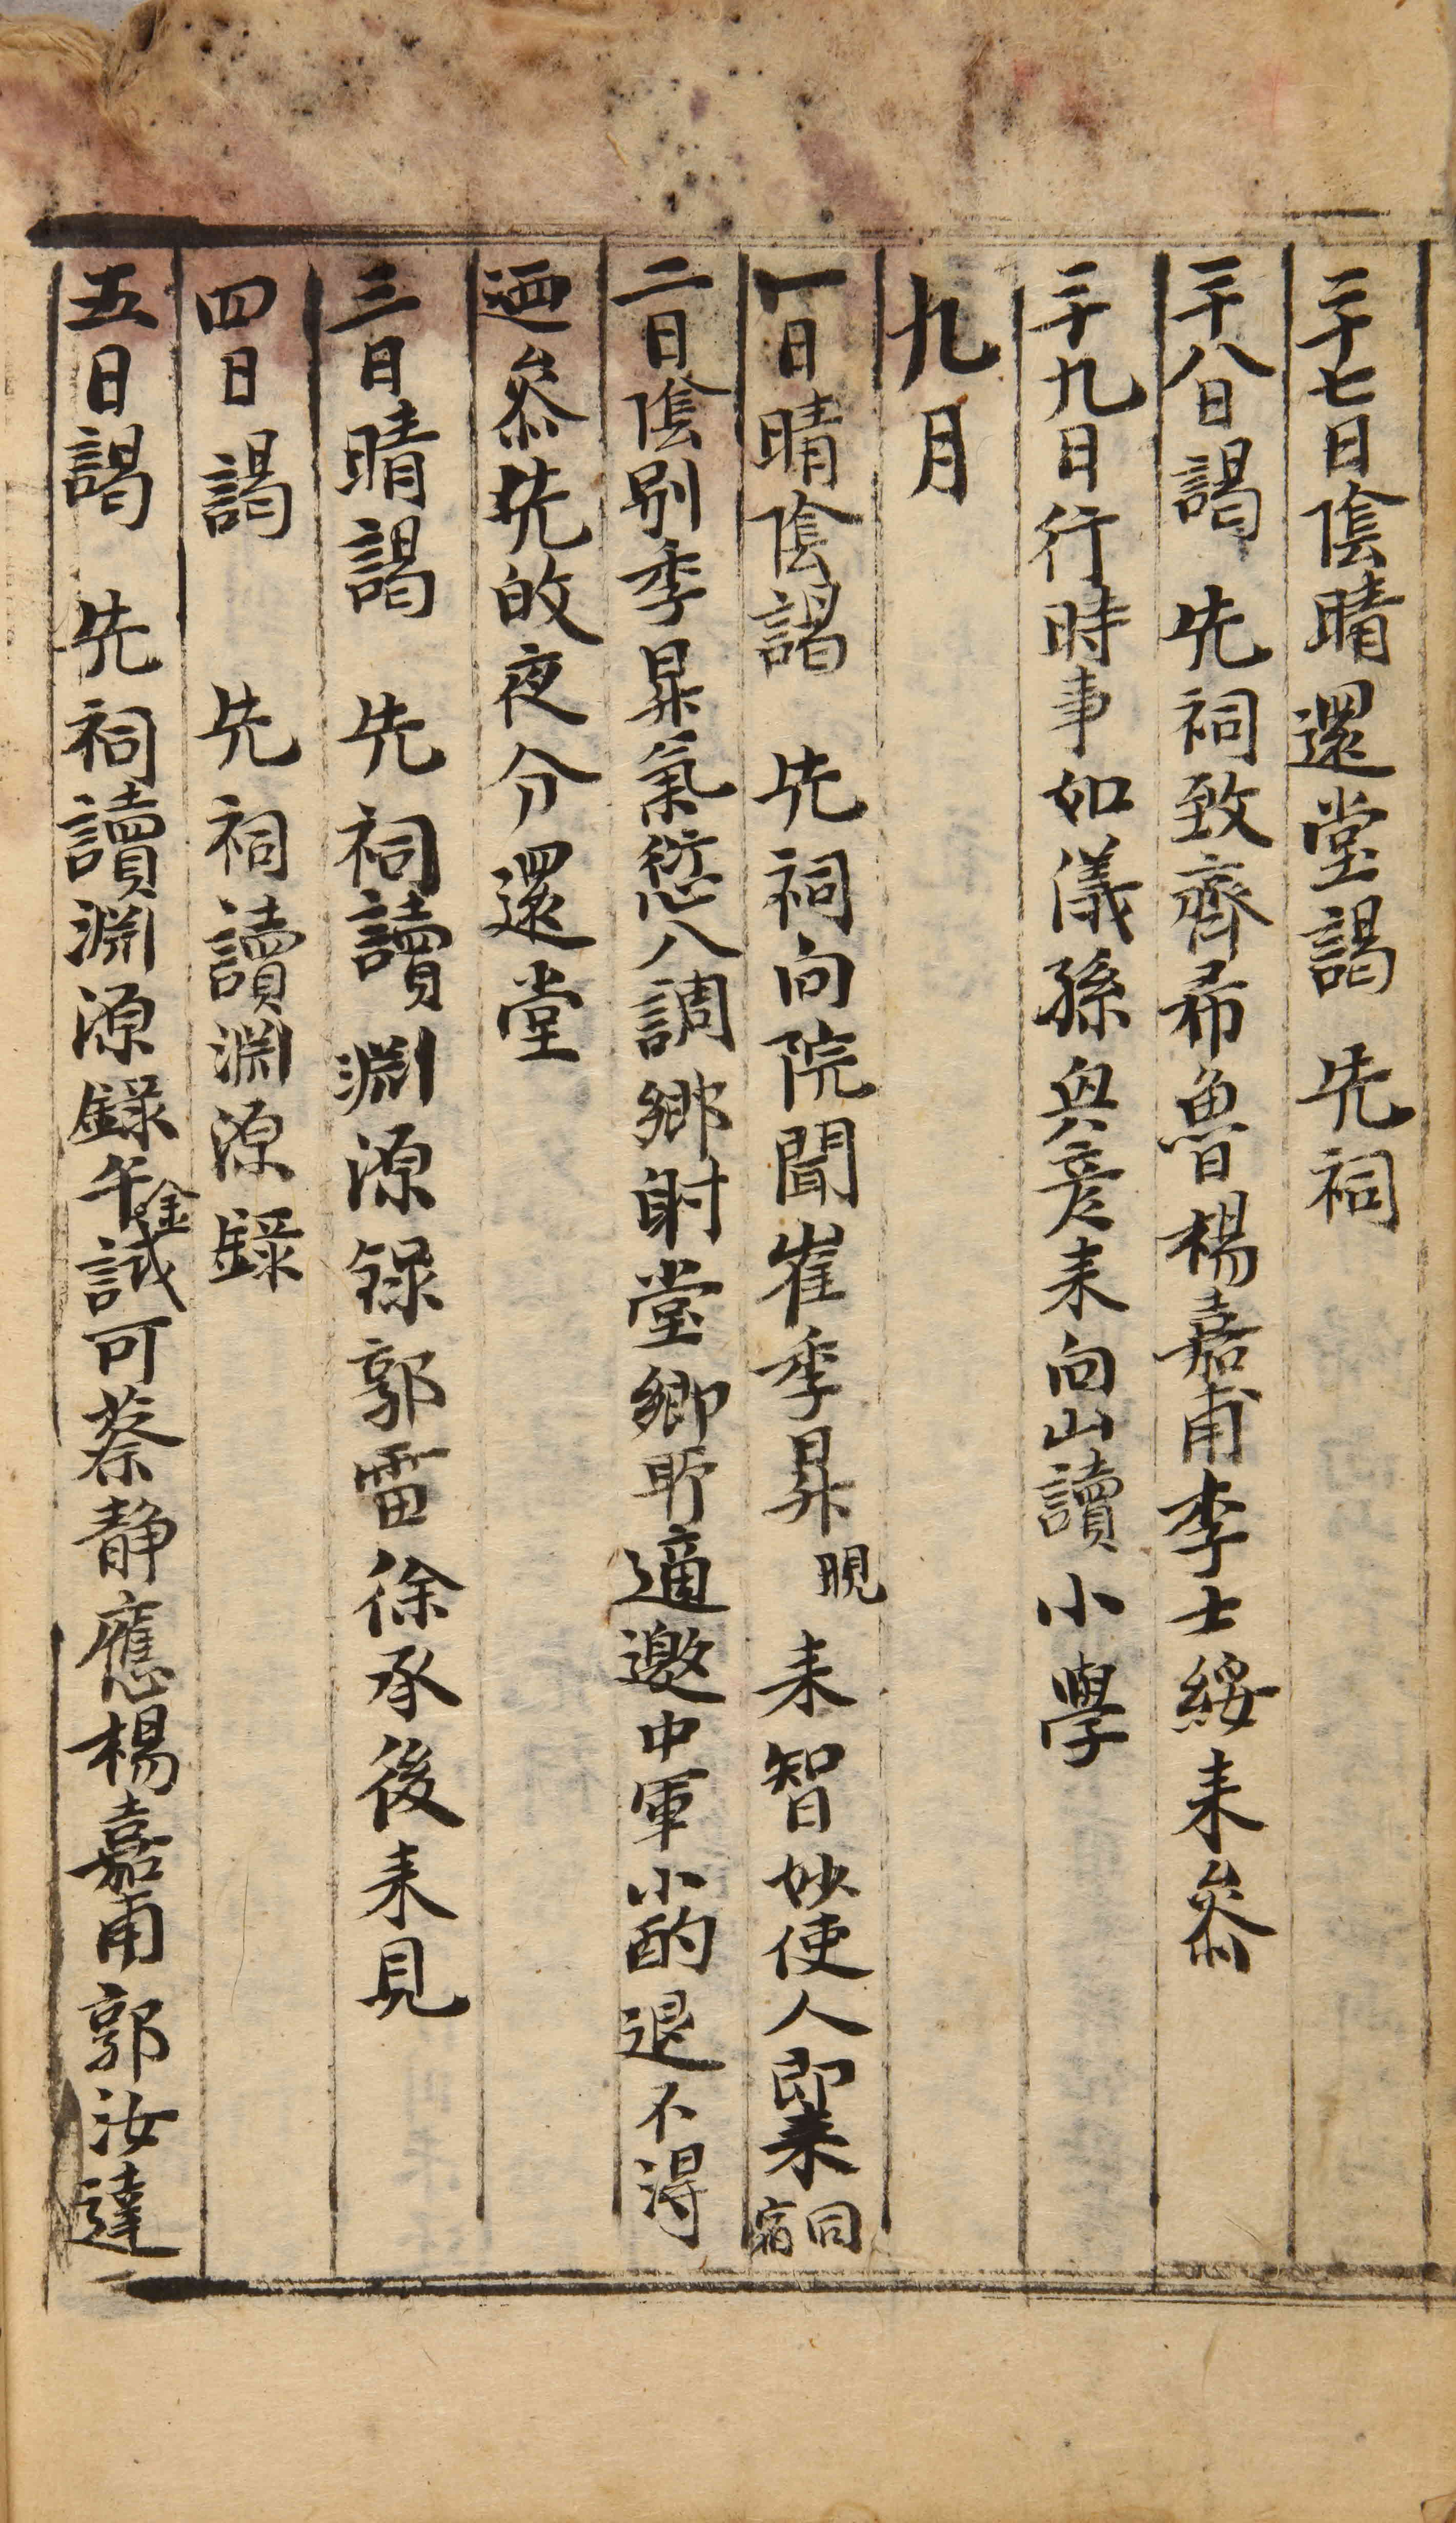 二十七日陰晴還堂謁 先祠
二十八日謁 先祠致齊希魯楊嘉甫李士綏来叅
二十九日行時事如儀孫與彦来向山讀小學
九月
一日晴陰謁 先祠向院聞崔季昇晛来智妙使人即来同宿
二日陰别季昇氣愆八調鄉射堂鄉所適邀中軍小酌退不得
迺叅先的夜分還堂
三日晴謁 先祠讀淵源録郭雷徐承後来見
四日謁 先祠讀淵源録
五日謁 先祠讀淵源録午金誠可蔡静應楊嘉甫郭汝達